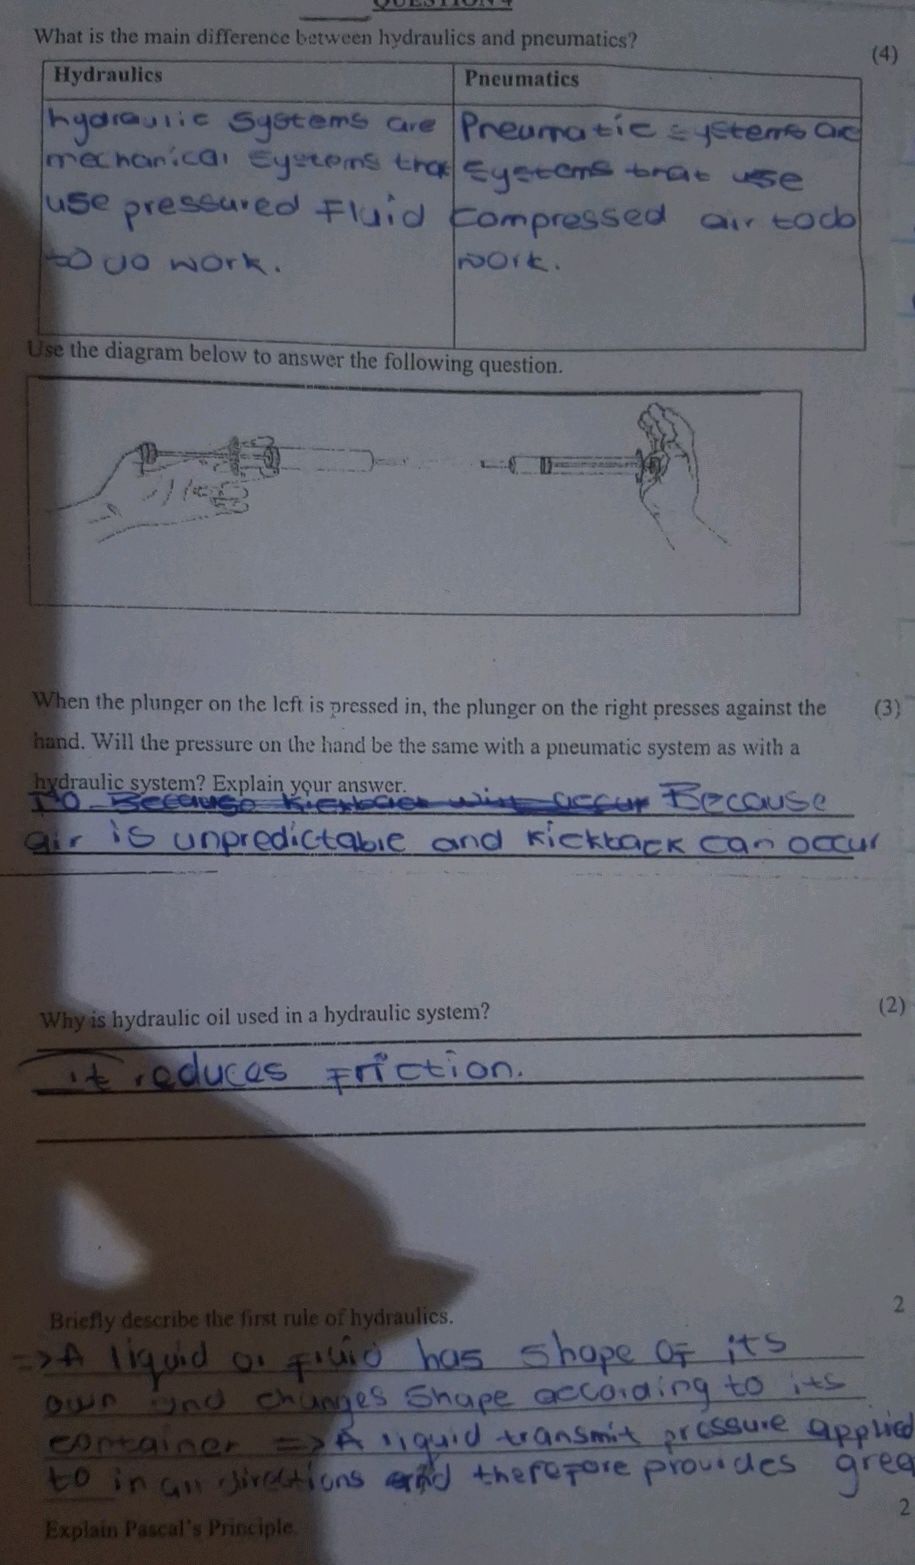 QUESTION 4
What is the main difference between hydraulics and pneumatics?
(4)
Hydraulics
Pneumatics
hydraulic systems are
mechanical systems that
use pressured Fluid
to do work.
Pneumatic systems are
systems that use
compressed air to do
work.
Use the diagram below to answer the following question.
When the plunger on the left is pressed in, the plunger on the right presses against the (3)
hand. Will the pressure on the hand be the same with a pneumatic system as with a
hydraulic system? Explain your answer.
No Because kickback will occur Because
air is unpredictable and kickback can occur
Why is hydraulic oil used in a hydraulic system? (2)
it reduces Friction.
Briefly describe the first rule of hydraulics. 2
=> A liquid or fluid has shape of its
own and changes shape according to its
container => A liquid transmit pressure applied
to in all directions and therefore provides grea
2
Explain Pascal's Principle.